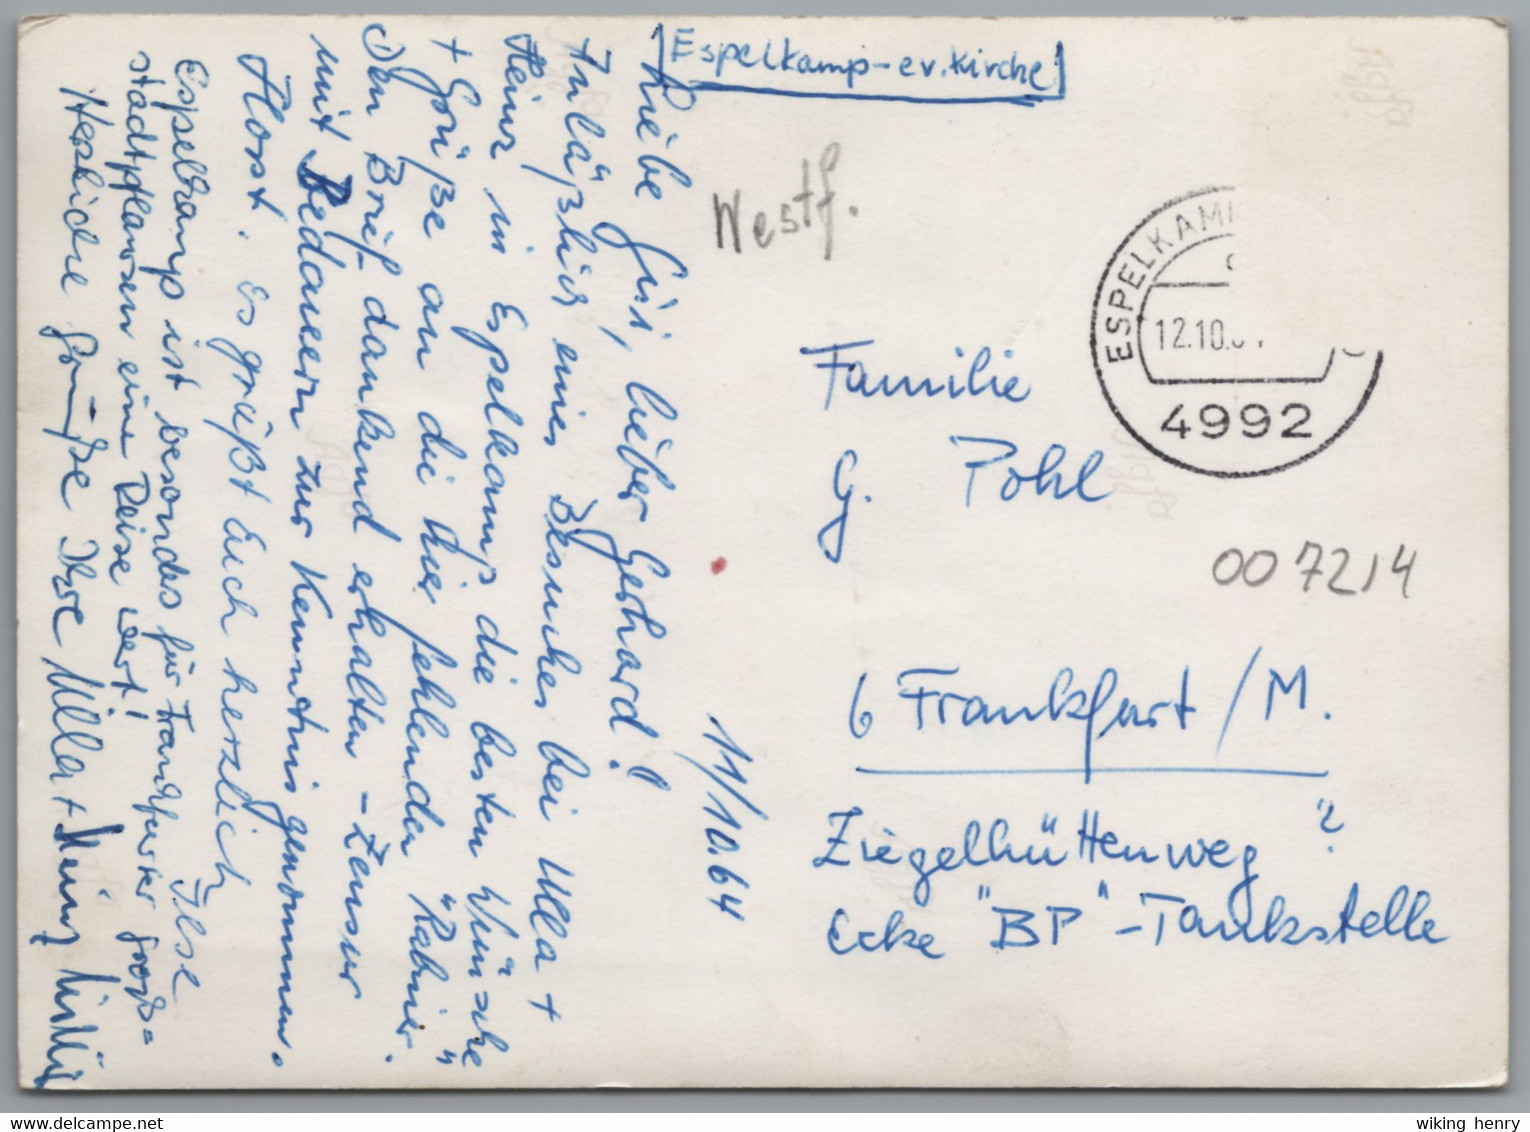 Espelkamp-ev. Kirche
Westf.
11/10.64
Liebe Gusi, lieber Gerhard!
Anläßlich eines Besuches bei Ulla +
Heinz in Espelkamp die besten Wünsche
+ Grüße an die hier fehlenden "Rabner".
Den Brief dankend erhalten - Zensur
mit Bedauern zur Kenntnis genommen.
Horst. Es grüßt Euch herzlich
Ilse
Espelkamp ist besonders für Frankfurter Groß=
stadtpflanzen eine Reise wert!
Herzliche Grüße Ihre Ulla + Heinz
ESPELKAMP
12.10.64
4992
Familie
G. Pohl
007214
6 Frankfurt/M.
Ziegelhüttenweg ?
Ecke "BP"-Tankstelle
Agfa
wiking henry
delcampe.net